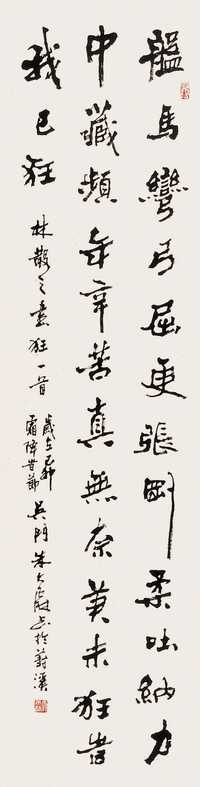 盤馬彎弓屈更張剛柔吐納力
中藏頻年辛苦真無奈莫未狂旹
我已狂
林散之書狂一首
歲在己卯
霜降旹節 吳門朱大霞書於葑溪